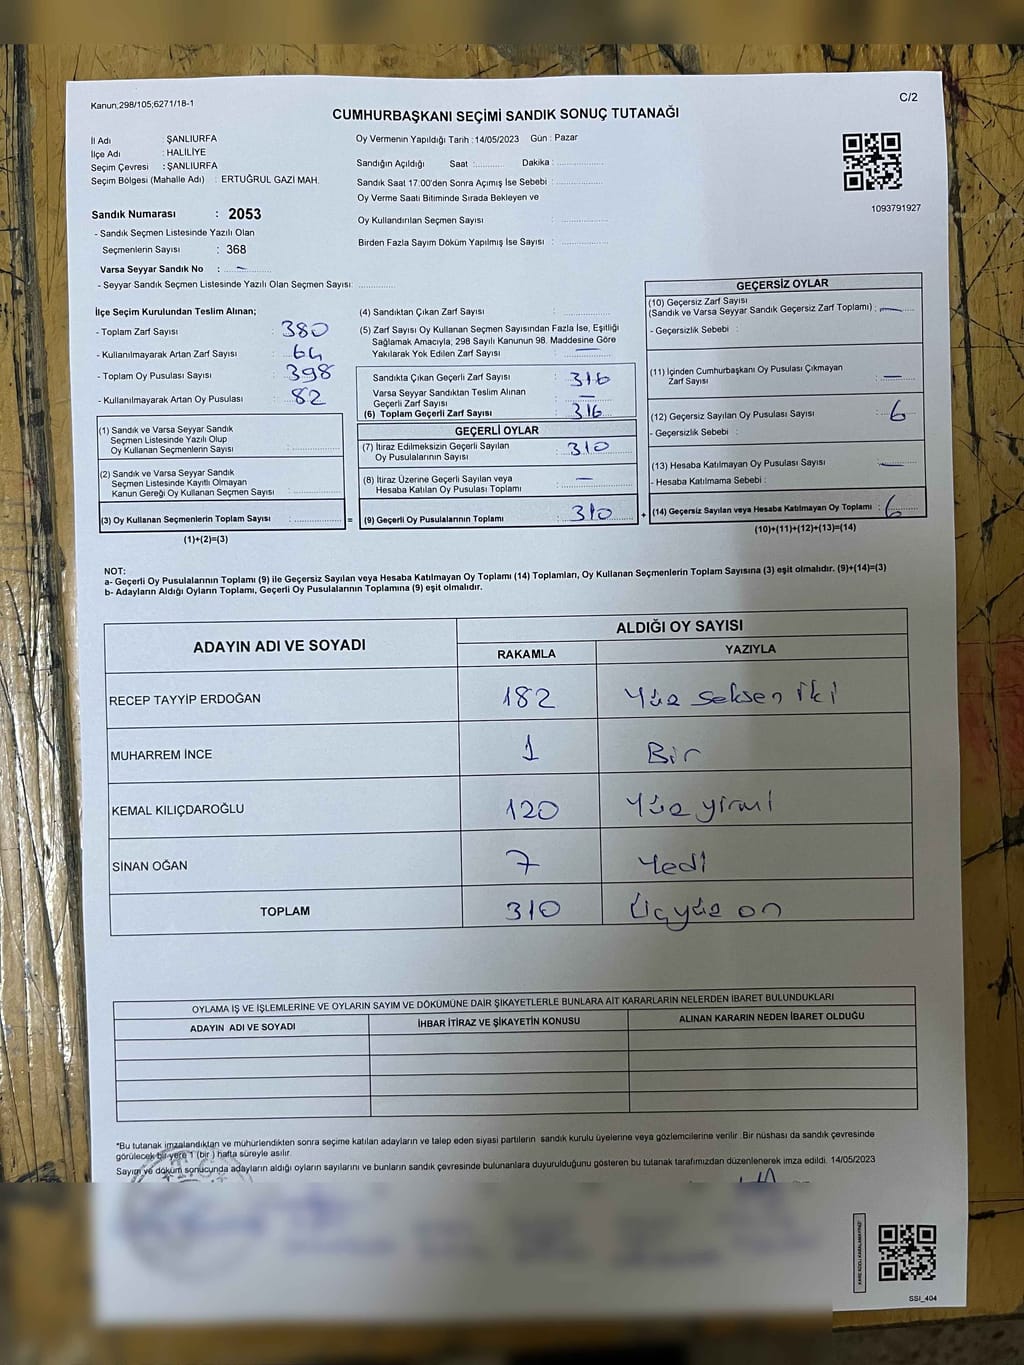 Kanun;298/105;6271/18-1
C/2
CUMHURBAŞKANI SEÇİMİ SANDIK SONUÇ TUTANAĞI
İl Adı : ŞANLIURFA
İlçe Adı : HALİLİYE
Seçim Çevresi : ŞANLIURFA
Seçim Bölgesi (Mahalle Adı) : ERTUĞRUL GAZİ MAH.
Sandık Numarası : 2053
- Sandık Seçmen Listesinde Yazılı Olan
Seçmenlerin Sayısı : 368
Varsa Seyyar Sandık No : -
- Seyyar Sandık Seçmen Listesinde Yazılı Olan Seçmen Sayısı:
Oy Vermenin Yapıldığı Tarih : 14/05/2023 Gün : Pazar
Sandığın Açıldığı Saat : Dakika :
Sandık Saat 17:00'den Sonra Açımış İse Sebebi :
Oy Verme Saati Bitiminde Sırada Bekleyen ve
Oy Kullandırılan Seçmen Sayısı :
Birden Fazla Sayım Döküm Yapılmış İse Sayısı :
1093791927
İlçe Seçim Kurulundan Teslim Alınan;
- Toplam Zarf Sayısı : 380
- Kullanılmayarak Artan Zarf Sayısı : 64
- Toplam Oy Pusulası Sayısı : 398
- Kullanılmayarak Artan Oy Pusulası : 82
(1) Sandık ve Varsa Seyyar Sandık
Seçmen Listesinde Yazılı Olup
Oy Kullanan Seçmenlerin Sayısı :
(2) Sandık ve Varsa Seyyar Sandık
Seçmen Listesinde Kayıtlı Olmayan
Kanun Gereği Oy Kullanan Seçmen Sayısı :
(3) Oy Kullanan Seçmenlerin Toplam Sayısı :
(1)+(2)=(3)
=
(4) Sandıktan Çıkan Zarf Sayısı :
(5) Zarf Sayısı Oy Kullanan Seçmen Sayısından Fazla İse, Eşitliği
Sağlamak Amacıyla, 298 Sayılı Kanunun 98. Maddesine Göre
Yakılarak Yok Edilen Zarf Sayısı : -
Sandıkta Çıkan Geçerli Zarf Sayısı : 316
Varsa Seyyar Sandıktan Teslim Alınan
Geçerli Zarf Sayısı : -
(6) Toplam Geçerli Zarf Sayısı : 316
GEÇERLİ OYLAR
(7) İtiraz Edilmeksizin Geçerli Sayılan
Oy Pusulalarının Sayısı : 310
(8) İtiraz Üzerine Geçerli Sayılan veya
Hesaba Katılan Oy Pusulası Toplamı : -
(9) Geçerli Oy Pusulalarının Toplamı : 310
+
GEÇERSİZ OYLAR
(10) Geçersiz Zarf Sayısı
(Sandık ve Varsa Seyyar Sandık Geçersiz Zarf Toplamı) : -
- Geçersizlik Sebebi :
(11) İçinden Cumhurbaşkanı Oy Pusulası Çıkmayan
Zarf Sayısı : -
(12) Geçersiz Sayılan Oy Pusulası Sayısı : 6
- Geçersizlik Sebebi :
(13) Hesaba Katılmayan Oy Pusulası Sayısı : -
- Hesaba Katılmama Sebebi :
(14) Geçersiz Sayılan veya Hesaba Katılmayan Oy Toplamı : 6
(10)+(11)+(12)+(13)=(14)
NOT:
a- Geçerli Oy Pusulalarının Toplamı (9) ile Geçersiz Sayılan veya Hesaba Katılmayan Oy Toplamı (14) Toplamları, Oy Kullanan Seçmenlerin Toplam Sayısına (3) eşit olmalıdır. (9)+(14)=(3)
b- Adayların Aldığı Oyların Toplamı, Geçerli Oy Pusulalarının Toplamına (9) eşit olmalıdır.
ADAYIN ADI VE SOYADI
ALDIĞI OY SAYISI
RAKAMLA YAZIYLA
RECEP TAYYİP ERDOĞAN 182 Yüz seksen iki
MUHARREM İNCE 1 Bir
KEMAL KILIÇDAROĞLU 120 Yüz yirmi
SİNAN OĞAN 7 Yedi
TOPLAM 310 Üçyüz on
OYLAMA İŞ VE İŞLEMLERİNE VE OYLARIN SAYIM VE DÖKÜMÜNE DAİR ŞİKAYETLERLE BUNLARA AİT KARARLARIN NELERDEN İBARET BULUNDUKLARI
ADAYIN ADI VE SOYADI İHBAR İTİRAZ VE ŞİKAYETİN KONUSU ALINAN KARARIN NEDEN İBARET OLDUĞU
*Bu tutanak imzalandıktan ve mühürlendikten sonra seçime katılan adayların ve talep eden siyasi partilerin sandık kurulu üyelerine veya gözlemcilerine verilir. Bir nüshası da sandık çevresinde
görülecek bir yere 1 (bir) hafta süreyle asılır.
Sayım ve döküm sonucunda adayların aldığı oyların sayılarını ve bunların sandık çevresinde bulunanlara duyurulduğunu gösteren bu tutanak tarafımızdan düzenlenerek imza edildi. 14/05/2023
SSI_404